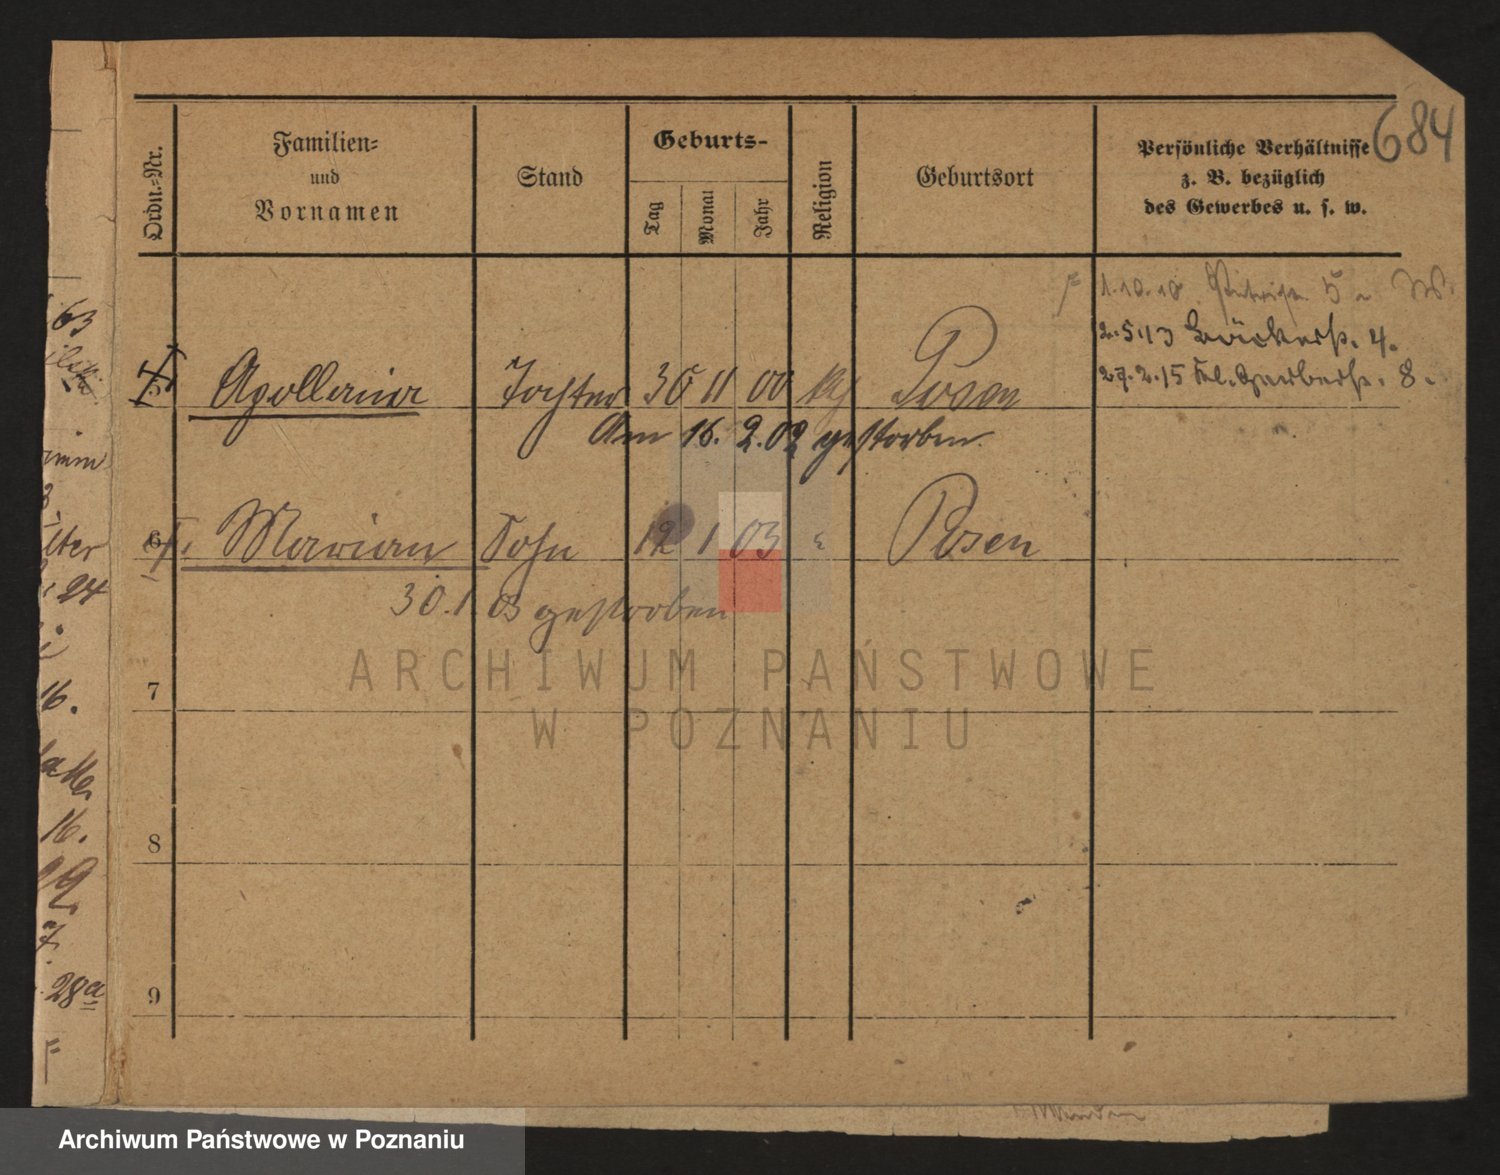 684
Ordn.-Nr.
Familien-
und
Vornamen
Stand
Geburts-
Tag
Monat
Jahr
Religion
Geburtsort
Persönliche Verhältnisse
z. B. bezüglich
des Gewerbes u. s. w.
1.10.10 5
2.5.13 Bäckerstr. 4.
27.2.15 Kl. Gerberstr. 8.
5 Apollonia Tochter 30 11 00 kth Posen
Am 16. 2. 02 gestorben.
6 Marian Sohn 12 1 03 " Posen
30.1.03 gestorben
7
8
9
63
16.
16.
28a
ARCHIWUM PAŃSTWOWE
W POZNANIU
Archiwum Państwowe w Poznaniu